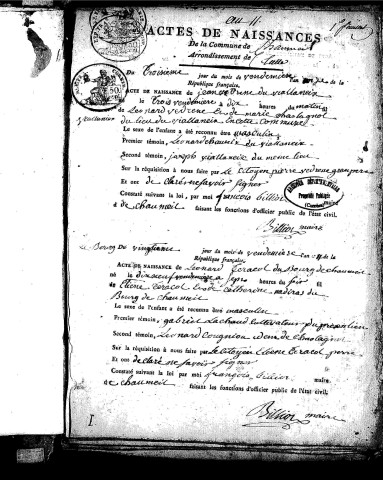 an 11
ACTES DE NAISSANCES
De la Commune de Chaumeil
Arrondissement de Tulle
Du troisieme jour du mois de vendemiere l'an onze de la
République française.
ACTE DE NAISSANCE de jean vedrene du viallaneix
le trois vendemiere a dix heures du matin
de Leonard vedrene et de marie chastagnol
du lieu du viallaneix en cette commune
Le sexe de l'enfant a été reconnu être masculin
Premier témoin, Leonard
Second témoin, du meme lieu
Sur la réquisition à nous faite par le citoyen pierre vedrene
Et ont declaré ne savoir signer
Constaté suivant la loi, par moi françois billior maire
de chaumeil faisant les fonctions d'officier public de l'état civil.
Billior maire
Le Bourg
Du vingtieme jour du mois de vendemiere l'an 11 de la
République française.
ACTE DE NAISSANCE de Leonard Ceracol du Bourg de chaumeil
né le dixneuf vendemiaire a sept heures du soir
de Etiene Ceracol et de Catherine
Bourg de chaumeil
Le sexe de l'enfant a été reconnu être masculin
Premier témoin, gabriel Lachaud cultivateur
Second témoin, Leonard
Sur la réquisition à nous faite par le citoyen Etiene Ceracol pere
Et ont declaré ne savoir signer
Constaté suivant la loi par moi françois billior maire
de chaumeil faisant les fonctions d'officier public de l'état civil.
Billior maire
I